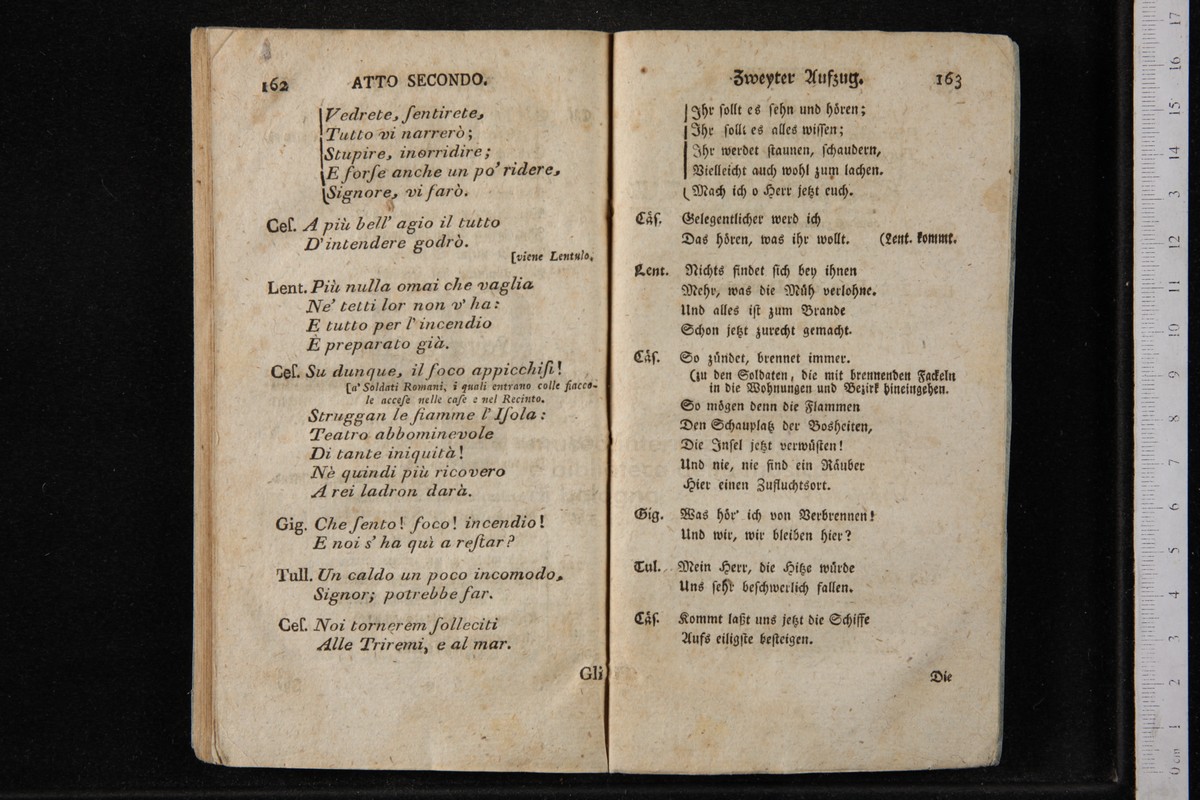 162 ATTO SECONDO.
Vedrete, ſentirete,
Tutto vi narrerò;
Stupire, inorridire;
E forſe anche un po' ridere,
Signore, vi farò.
Ceſ. A più bell' agio il tutto
D'intendere godrò.
[viene Lentulo.
Lent. Più nulla omai che vaglia
Ne' tetti lor non v' ha:
E tutto per l'incendio
È preparato già.
Ceſ. Su dunque, il foco appicchiſi!
[a' Soldati Romani, i quali entrano colle fiacco-
le acceſe nelle caſe e nel Recinto.
Struggan le fiamme l'Iſola:
Teatro abbominevole
Di tante iniquità!
Nè quindi più ricovero
A rei ladron darà.
Gig. Che ſento! foco! incendio!
E noi s' ha quì a reſtar?
Tull. Un caldo un poco incomodo,
Signor; potrebbe far.
Ceſ. Noi tornerem ſolleciti
Alle Triremi, e al mar.
Gli
Zweyter Aufzug. 163
Ihr ſollt es ſehn und hören;
Ihr ſollt es alles wiſſen;
Ihr werdet ſtaunen, ſchaudern,
Vielleicht auch wohl zum lachen.
Mach ich o Herr jetzt euch.
Cäſ. Gelegentlicher werd ich
Das hören, was ihr wollt. (Lent. kommt.
Lent. Nichts findet ſich bey ihnen
Mehr, was die Müh verlohne.
Und alles iſt zum Brande
Schon jetzt zurecht gemacht.
Cäſ. So zündet, brennet immer.
(zu den Soldaten, die mit brennenden Fackeln
in die Wohnungen und Bezirk hineingehen.
So mögen denn die Flammen
Den Schauplatz der Bosheiten,
Die Inſel jetzt verwüſten!
Und nie, nie find ein Räuber
Hier einen Zufluchtsort.
Gig. Was hör' ich von Verbrennen!
Und wir, wir bleiben hier?
Tul. Mein Herr, die Hitze würde
Uns ſehr beſchwerlich fallen.
Cäſ. Kommt laßt uns jetzt die Schiffe
Aufs eiligſte beſteigen.
Die